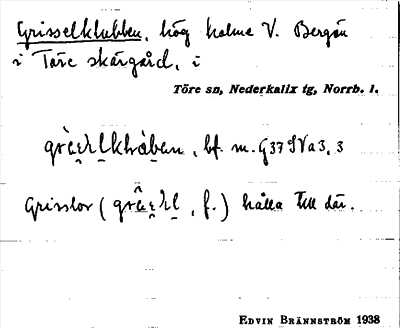 Grisselklubben, hög holme V. Bergön
i Töre skärgård, i
Töre sn, Nederkalix tg, Norrb. l.
bf. m. G37 SVa3, 3
Grisslor ( , f.) hålla till där.
EDVIN BRÄNNSTRÖM 1938